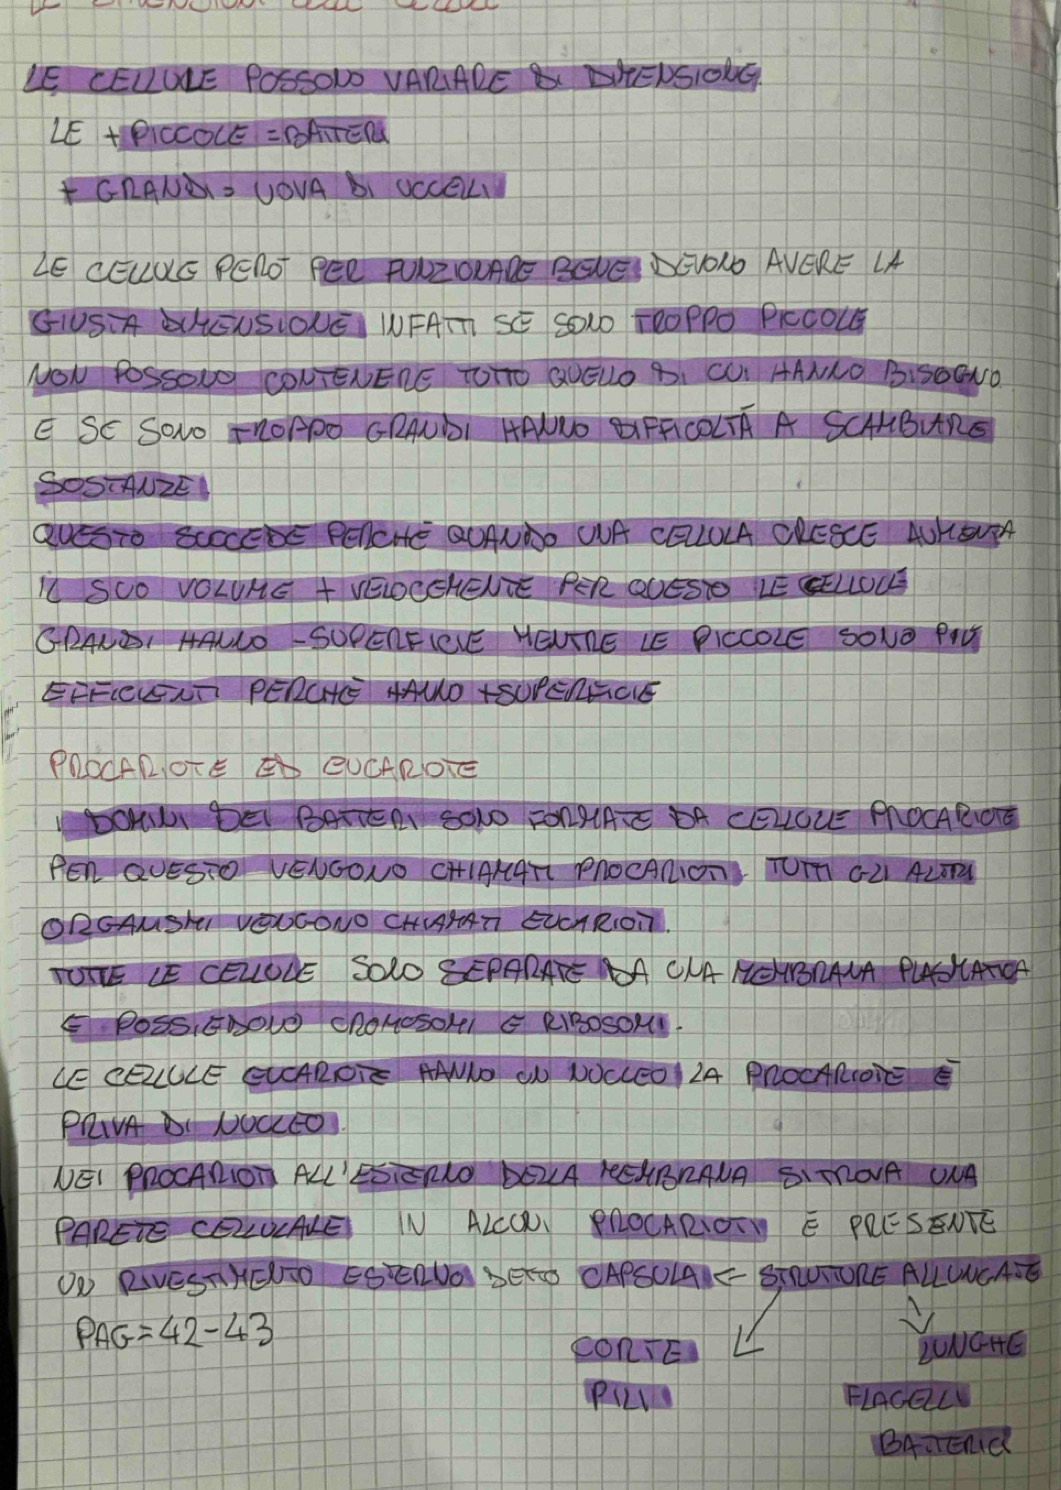 LE DIMENSIONI DELLE CELLULE
LE CELLULE POSSONO VARIARE DI DIMENSIONE
LE + PICCOLE = BATTERI
+ GRANDI = UOVA DI UCCELLI
LE CELLULE PERÒ PER FUNZIONARE BENE DEVONO AVERE LA
GIUSTA DIMENSIONE INFATTI SE SONO TROPPO PICCOLE
NON POSSONO CONTENERE TUTTO QUELLO DI CUI HANNO BISOGNO
E SE SONO TROPPO GRANDI HANNO DIFFICOLTÀ A SCAMBIARE
SOSTANZE
QUESTO SUCCEDE PERCHÈ QUANDO UNA CELLULA CRESCE AUMENTA
IL SUO VOLUME + VELOCEMENTE PER QUESTO LE CELLULE
GRANDI HANNO - SUPERFICIE MENTRE LE PICCOLE SONO PIÙ
EFFICIENTI PERCHÈ HANNO + SUPERFICIE
PROCARIOTE ED EUCARIOTE
I DOMINI DEI BATTERI SONO FORMATE DA CELLULE PROCARIOTE
PER QUESTO VENGONO CHIAMATI PROCARIOTI. TUTTI GLI ALTRI
ORGANISMI VENGONO CHIAMATI EUCARIOTI.
TUTTE LE CELLULE SONO SEPARATE DA UNA MEMBRANA PLASMATICA
E POSSIEDONO CROMOSOMI E RIBOSOMI.
LE CELLULE EUCARIOTE HANNO UN NUCLEO LA PROCARIOTE È
PRIVA DI NUCLEO.
NEI PROCARIOTI ALL'ESTERNO DELLA MEMBRANA SI TROVA UNA
PARETE CELLULARE IN ALCUNI PROCARIOTI È PRESENTE
UN RIVESTIMENTO ESTERNO DETTO CAPSULA E STRUTTURE ALLUNGATE
PAG = 42-43
CORTE LUNGHE
PILI FLAGELLI
BATTERICI